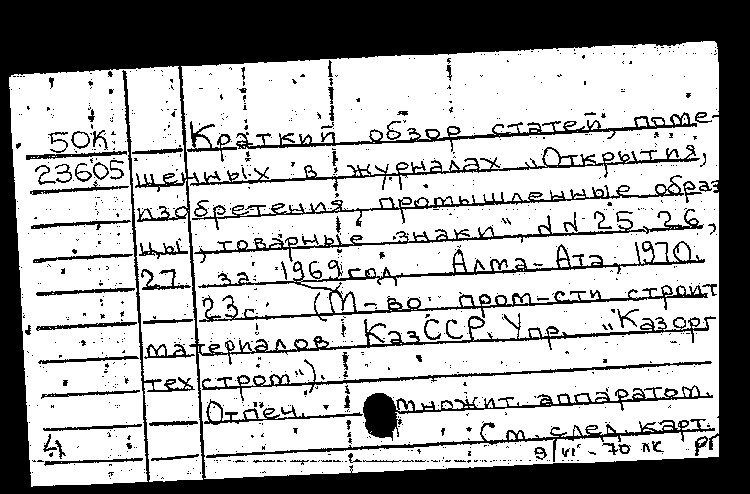 50К Краткий обзор статей, поме-
23605 щенных в журналах „Открытия,
изобретения, промышленные образ
цы, товарные знаки", №№ 25, 26,
27 за 1969 год. Алма-Ата, 1970.
23с. (М-во пром-сти строит
материалов КазССР. Упр. „Казорг
техстром").
Отпеч. множит. аппаратом.
4 См. след. карт.
9/VI-70 лк рг